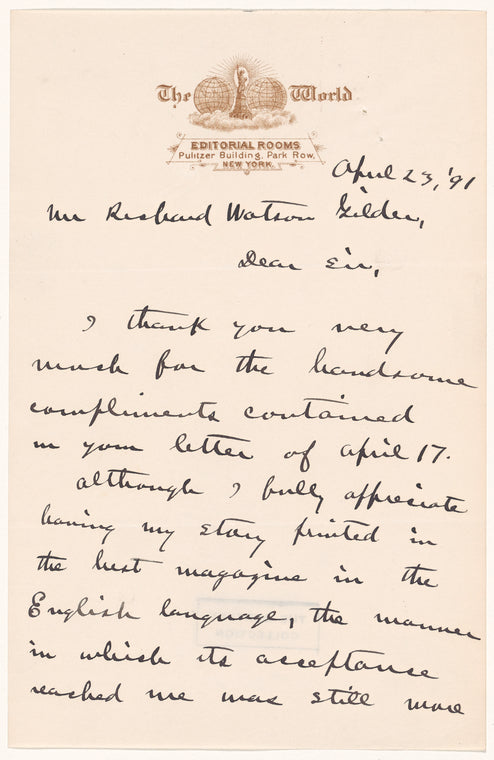 The World
EDITORIAL ROOMS
Pulitzer Building, Park Row,
NEW YORK.
April 23, '91
Mr Richard Watson Gilder,
Dear Sir,
I thank you very
much for the handsome
compliments contained
in your letter of April 17.
Although I fully appreciate
having my story printed in
the best magazine in the
English language, the manner
in which its acceptance
reached me was still more
COLLECTION